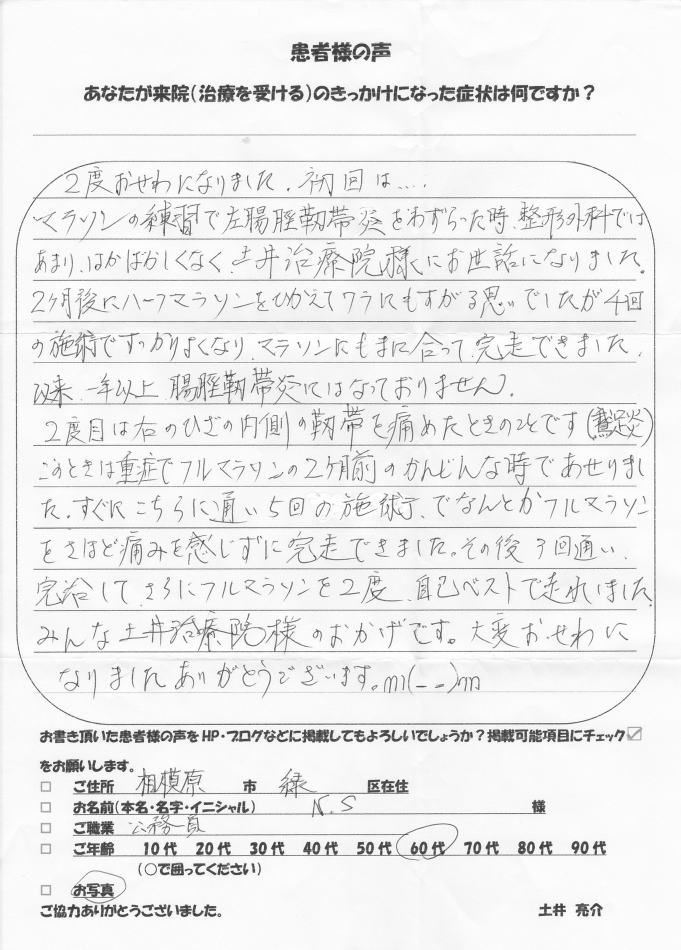 患者様の声
あなたが来院(治療を受ける)のきっかけになった症状は何ですか?
2度おせわになりました。初回は....
マラソンの練習で左腸脛靭帯炎をわずらった時、整形外科では
あまり、はかばかしくなく、土井治療院様にお世話になりました。
2ヶ月後にハーフマラソンをひかえてワラにもすがる思いでしたが4回
の施術ですっかりよくなり、マラソンにもまに合って完走できました。
以来、一年以上、腸脛靭帯炎にはなっておりません。
2度目は右のひざの内側の靭帯を痛めたときのことです(鵞足炎)
このときは重症でフルマラソンの2ヶ月前のかんじんな時であせりまし
た。すぐにこちらに通い5回の施術で、なんとかフルマラソン
をさほど痛みを感じずに完走できました。その後3回通い、
完治して、さらにフルマラソンを2度、自己ベストで走れました。
みんな土井治療院様のおかげです。大変おせわに
なりましたありがとうございます。m(_ _)m
お書き頂いた患者様の声をHP・ブログなどに掲載してもよろしいでしょうか?掲載可能項目にチェック☑
をお願いします。
□ ご住所 相模原 市 緑 区在住
□ お名前(本名・名字・イニシャル) N.S 様
□ ご職業 公務員
□ ご年齢 10代 20代 30代 40代 50代 60代 70代 80代 90代
(○で囲ってください)
□ お写真
ご協力ありがとうございました。 土井 亮介